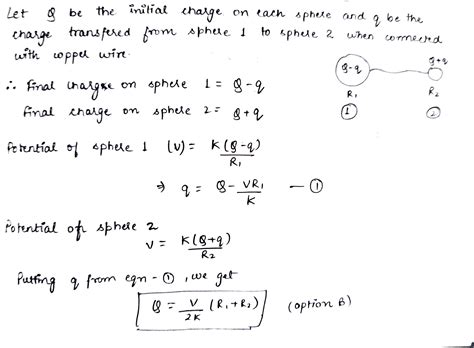 Let Q be the initial charge on each sphere and q be the
charge transfered from sphere 1 to sphere 2 when connected
with copper wire.
∴ Final charge on sphere 1 = Q-q
Final charge on sphere 2 = Q+q
Q-q
Q+q
R₁
R₂
①
②
Potential of sphere 1 (V) = K(Q-q)/R₁
⇒ q = Q - VR₁/K — ①
Potential of sphere 2
V = K(Q+q)/R₂
Putting q from eqn - ①, we get
Q = V/2K (R₁+R₂) (option B)